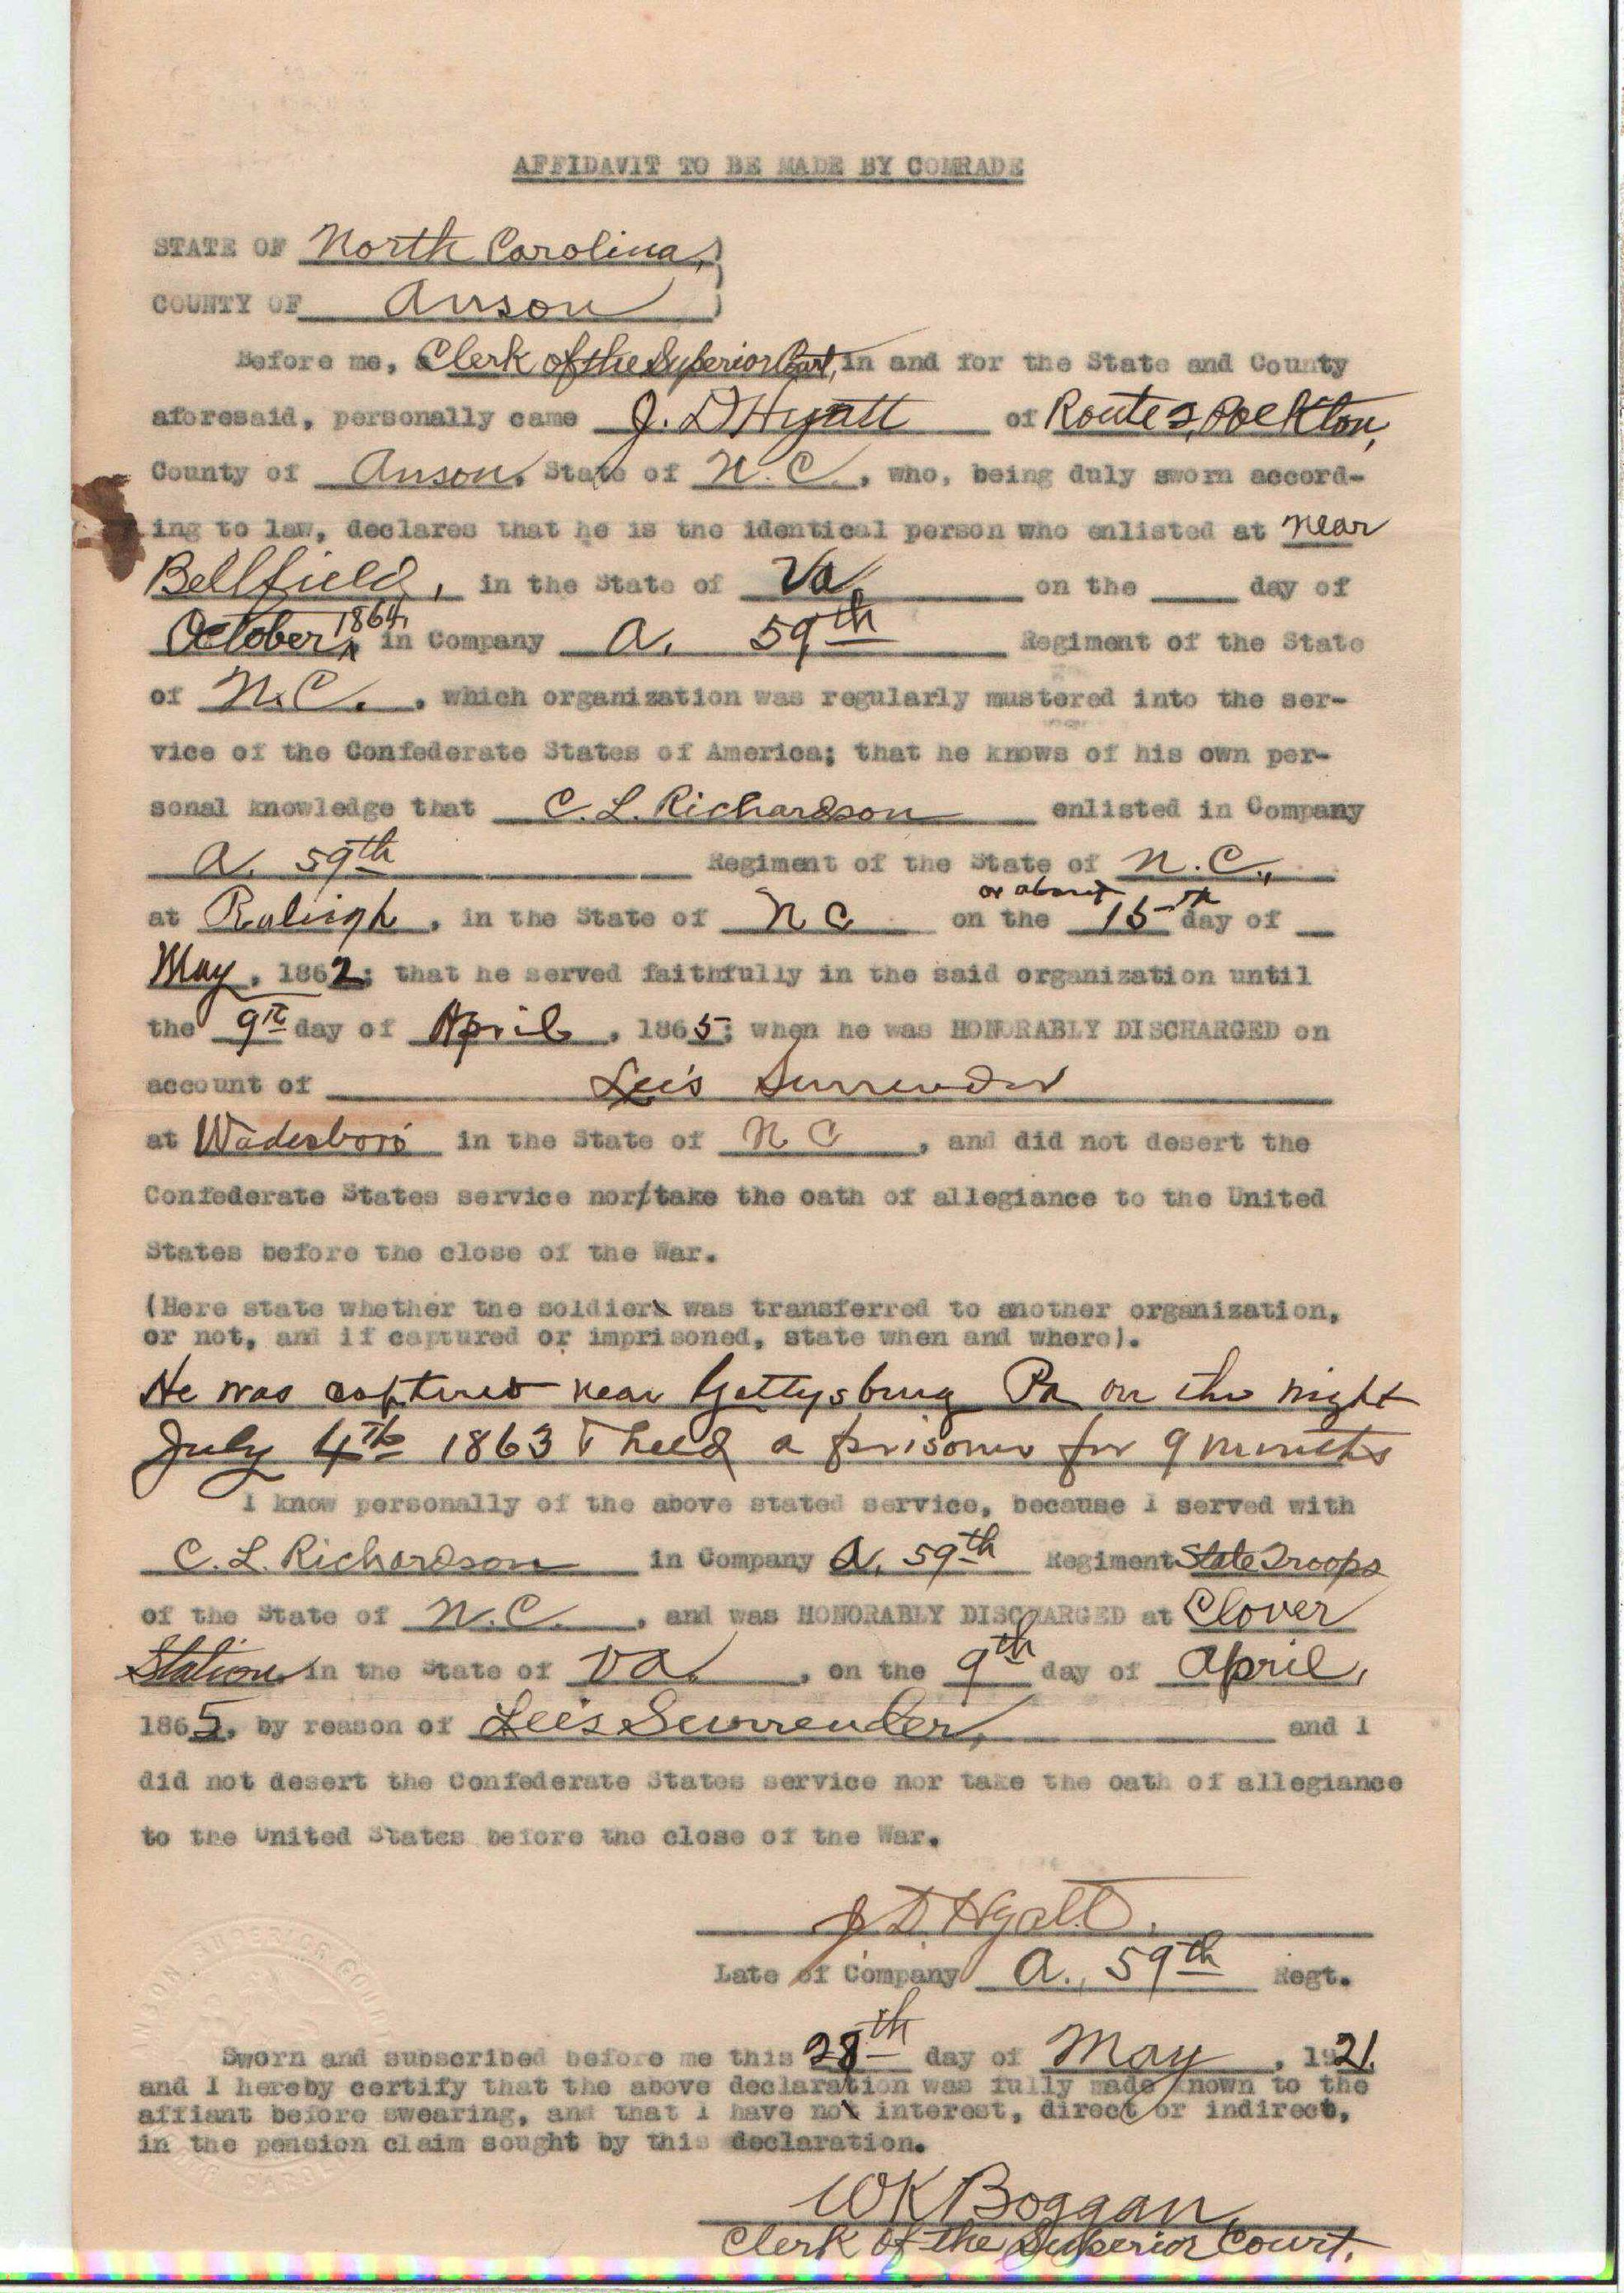 AFFIDAVIT TO BE MADE BY COMRADE
STATE OF North Carolina,)
COUNTY OF Anson )
Before me, a Clerk of the Superior Court, in and for the State and County
aforesaid, personally came J. D Hyatt of Route 2, Polkton,
County of Anson, State of N.C., who, being duly sworn accord-
ing to law, declares that he is the identical person who enlisted at near
Bellfield, in the State of Va. on the ____ day of
October, 1864, in Company A. 59th Regiment of the State
of N.C., which organization was regularly mustered into the ser-
vice of the Confederate States of America; that he knows of his own per-
sonal knowledge that C. L. Richardson enlisted in Company
A. 59th Regiment of the State of N.C.,
at Raleigh, in the State of N C on the or about 15th day of
May, 1862; that he served faithfully in the said organization until
the 9th day of April, 1865; when he was HONORABLY DISCHARGED on
account of Lee's Surrender
at Wadesboro in the State of N C, and did not desert the
Confederate States service nor/take the oath of allegiance to the United
States before the close of the War.
(Here state whether the soldier was transferred to another organization,
or not, and if captured or imprisoned, state when and where).
He was captured near Gettysburg Pa on the night
July 4th 1863 & held a prisoner for 9 months
I know personally of the above stated service, because I served with
C. L. Richardson in Company A. 59th Regiment State Troops
of the State of N.C., and was HONORABLY DISCHARGED at Clover
Station in the State of Va., on the 9th day of April,
1865, by reason of Lee's Surrender, and I
did not desert the Confederate States service nor take the oath of allegiance
to the United States before the close of the War.
J. D. Hyatt.
Late of Company A., 59th Regt.
Sworn and subscribed before me this 28th day of May, 1921.
and I hereby certify that the above declaration was fully made known to the
affiant before swearing, and that I have no interest, direct or indirect,
in the pension claim sought by this declaration.
W K Boggan,
Clerk of the Superior Court.